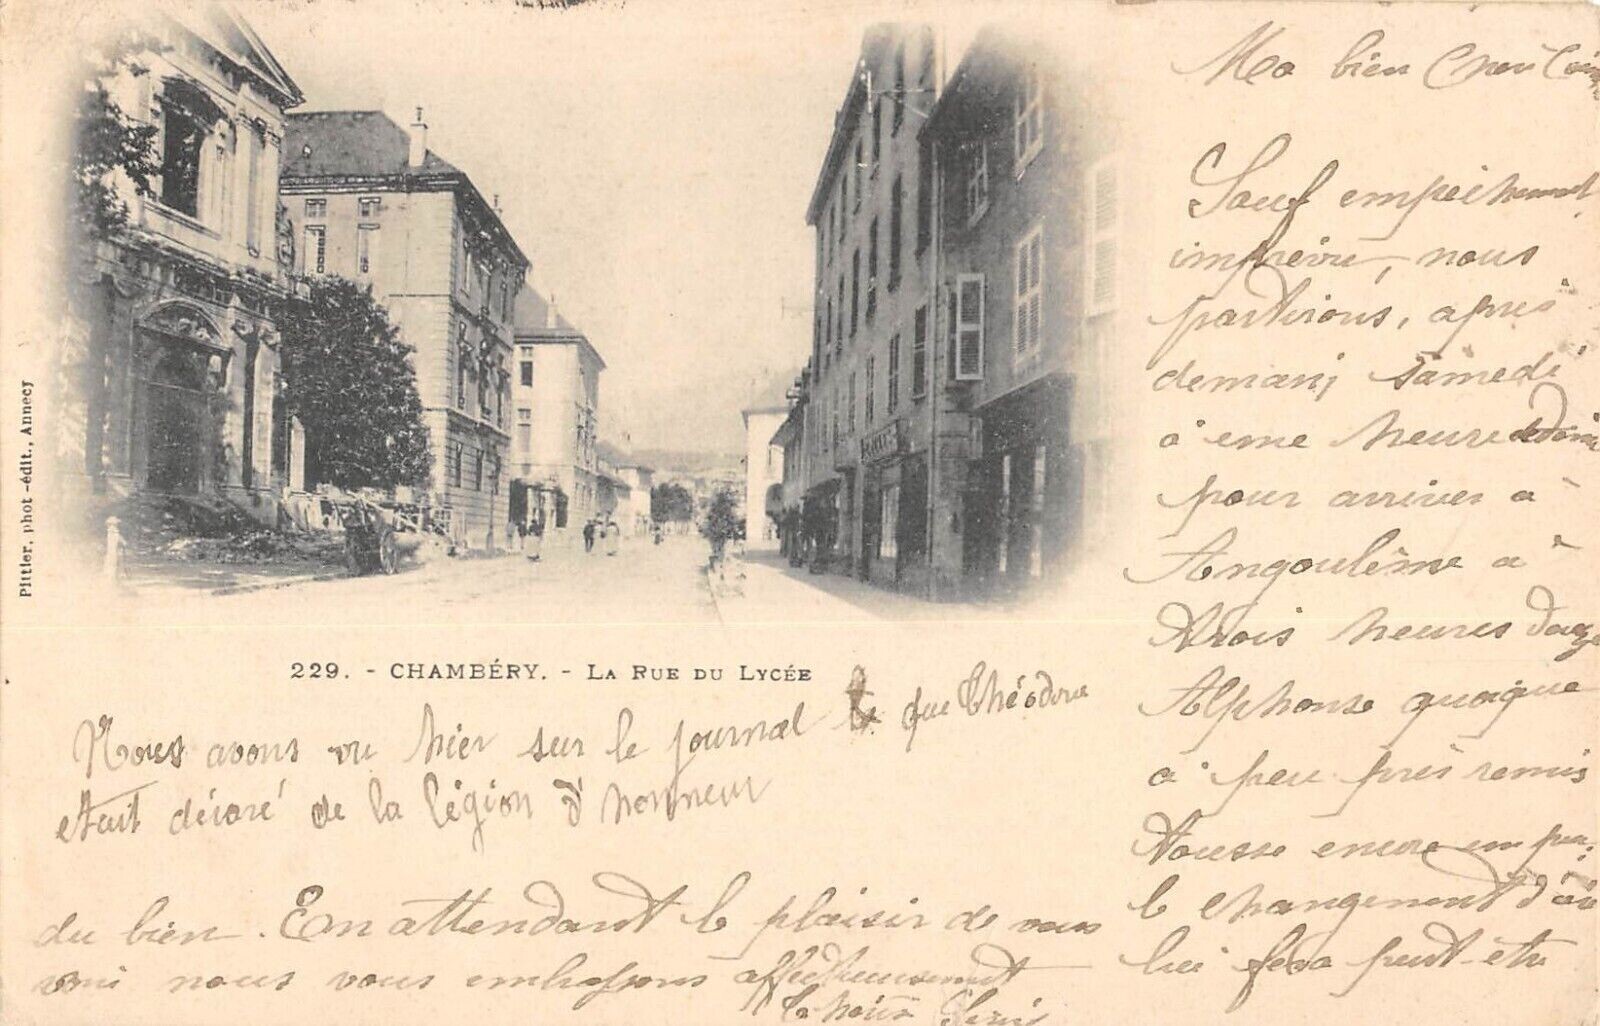 Pittier, phot-édit., Annecy
229. - CHAMBÉRY. - LA RUE DU LYCÉE
Ma bien
Sauf empéchement
imprévu, nous
partirons, après
demain, samedi
à eme heure
pour arriver à
Angoulême à
trois heures
Alphonse quoique
à peu près remis
tousse encore un peu.
le changement d'air
lui fera peut-etre
du bien. En attendant le plaisir de vous
voir nous vous embrassons affectueusement
Nous avons vu hier sur le journal que Théodore
etait décoré de la légion d'honneur